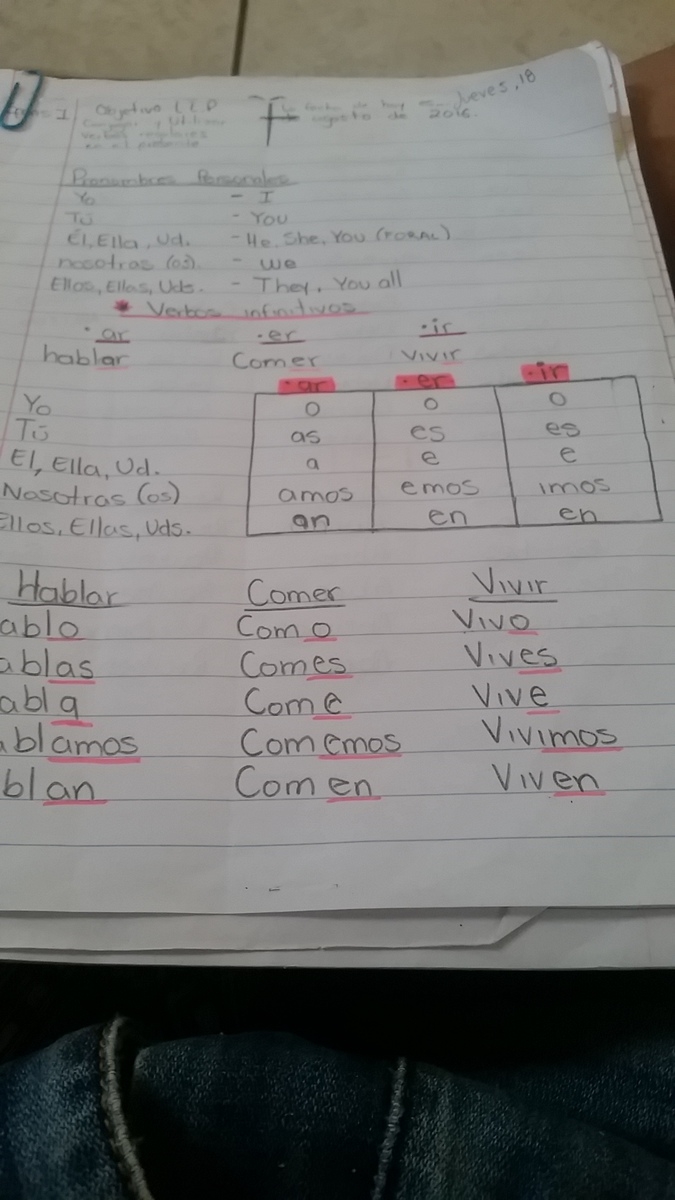 Objetivo I.L.P
Jueves, 18
agosto de 2016.
Pronombres Personales
Yo - I
Tú - You
Él, Ella, Ud. - He, She, You (FORAL)
nosotras (os). - we
Ellos, Ellas, Uds. - They, You all
* Verbos infinitivos
·ar ·er ·ir
hablar Comer Vivir
·ar ·er ·ir
Yo o o o
Tú as es es
El, Ella, Ud. a e e
Nosotras (os) amos emos imos
Ellos, Ellas, Uds. an en en
Hablar Comer Vivir
ablo Como Vivo
ablas Comes Vives
abla Come Vive
ablamos Comemos Vivimos
blan Comen Viven